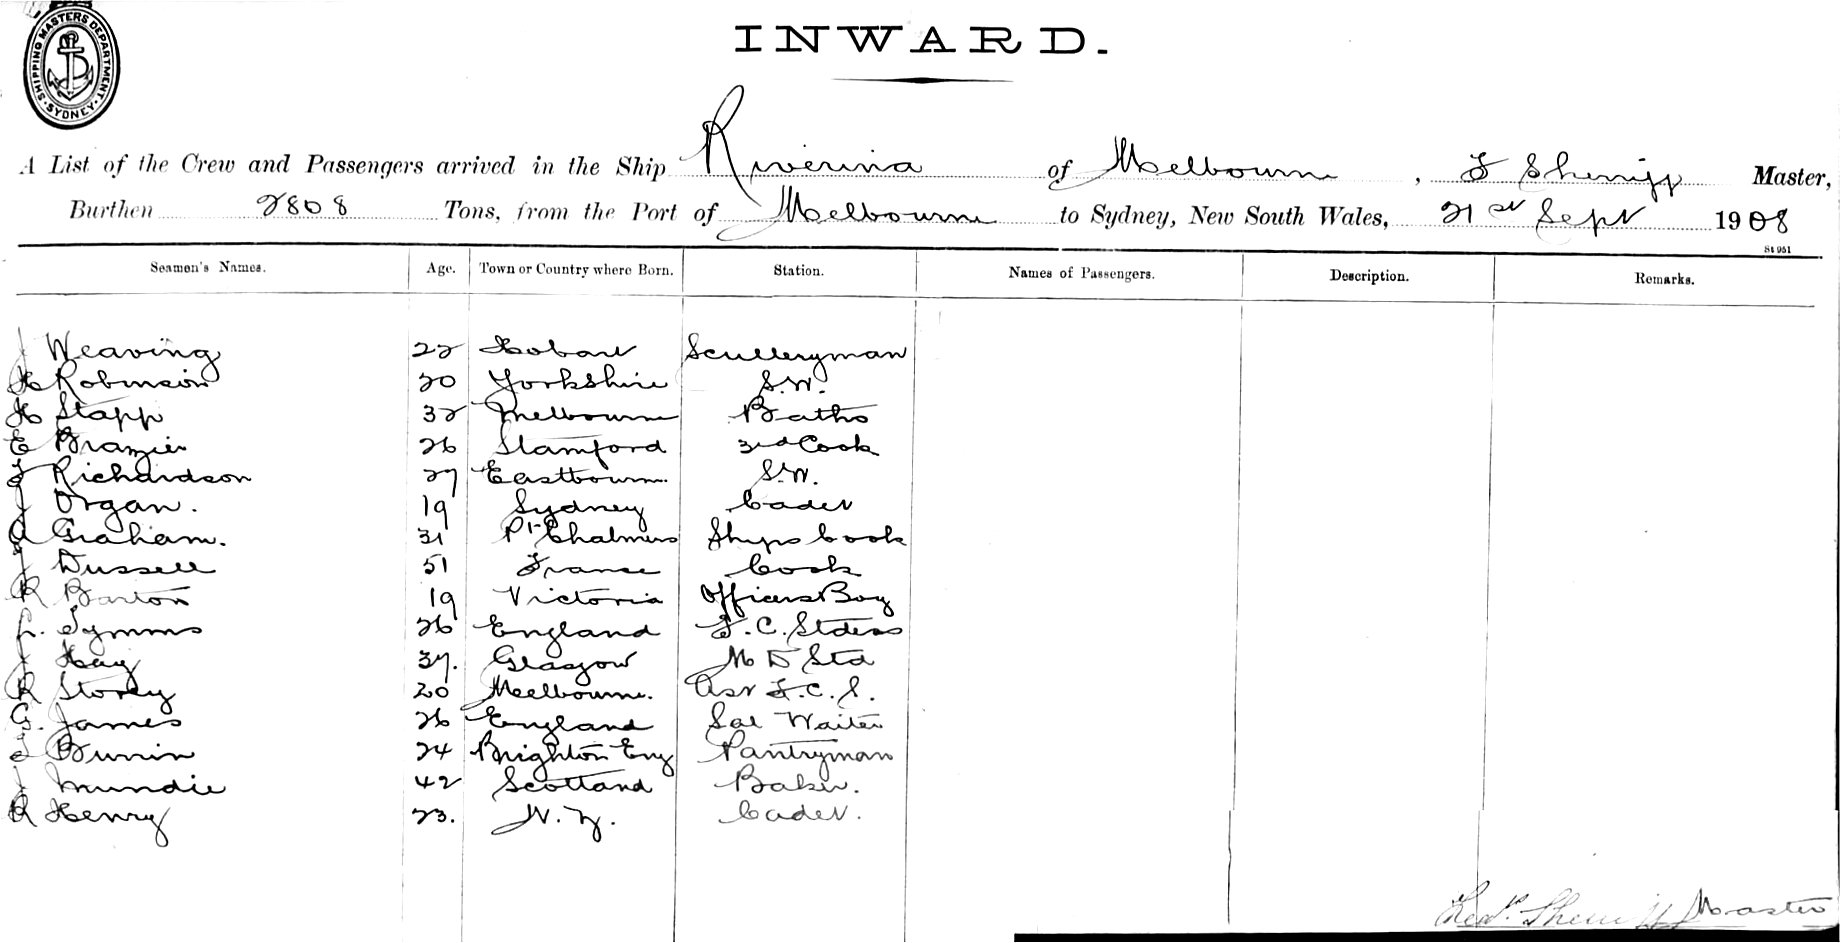 SHIPPING MASTERS DEPARTMENT. SYDNEY
INWARD.
A List of the Crew and Passengers arrived in the Ship Riverina of Melbourne, F Sherriff Master,
Burthen 2808 Tons, from the Port of Melbourne to Sydney, New South Wales, 21st Sept 1908
St 951
Seamen's Names. Age. Town or Country where Born. Station. Names of Passengers. Description. Remarks.
J Weaving 22 Hobart Sculleryman
H Robinson 20 Yorkshire S.W.
H Stapp 32 Melbourne Baths
E Brazier 26 Stamford 3rd Cook
F Richardson 27 Eastbourn. S.W.
J Organ. 19 Sydney Cadet
A Graham. 31 Pt Chalmers Ships Cook
J Dussell 51 France Cook
R Barton 19 Victoria Officers Boy
Symms 26 England F.C. Stdess
J Hay 37. Glasgow M D Std
R Storey 20 Melbourne. Ast F.C.S.
G. James 26 England Sal Waiter
F Bunin 24 Brighton Eng Pantryman
J Mundie 42 Scotland Baker.
R Henry 23. N.Z. Cadet.
Sherriff Master